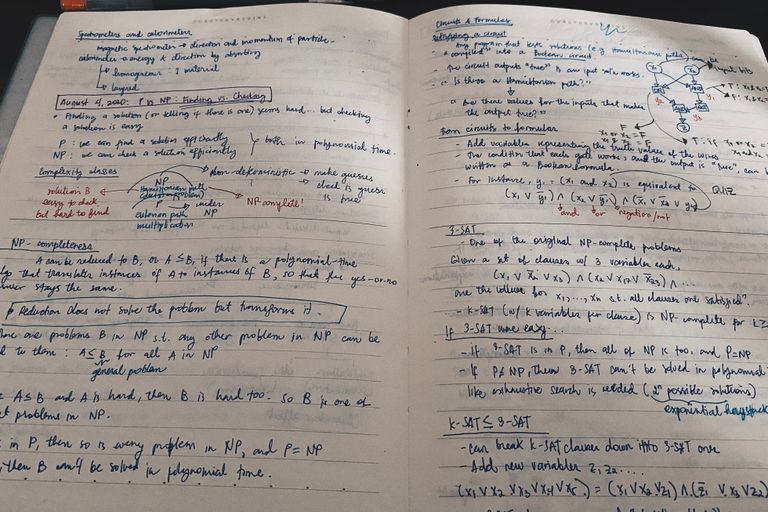 Spectrometers and calorimeters
magnetic spectrometer → direction and momentum of particle.
calorimeter → energy & direction by absorbing
↳ homogeneous : material
↳ layered
August 4, 2020: P vs NP: Finding vs. Checking
• Finding a solution (or telling if there is one) seems hard... but checking
a solution is easy
P : we can find a solution efficiently
NP : we can check a solution efficiently
both in polynomial time.
Complexity classes
Non-deterministic → make guesses
check is guess
is true
NP
Hamiltonian path
P
eulerian path
multiplication
under
NP
solution B
easy to check
but hard to find
NP-complete!
NP-completeness
A can be reduced to B, or A ≤ B, if there is a polynomial-time
that translates instances of A to instances of B, so that the yes-or-no
stays the same.
Reduction does not solve the problem but transforms it.
are problems B in NP s.t. any other problem in NP can be
to them : A ≤ B for all A in NP
general problem
A ≤ B and A is hard, then B is hard too. So B is one of
problems in NP.
in P, then so is every problem in NP, and P = NP
, then B can't be solved in polynomial time.
Circuits & formulas
Satisfying a circuit
- Any program that tests solutions (e.g. Hamiltonian paths) can be
"compiled" into a Boolean circuit
- the circuit outputs "true" is an input works.
- "Is there a Hamiltonian path?"
↓
are there values for the inputs that make
the output true?"
From circuits to formulas
- Add variables representing the truth values of the wires
- The condition that each gate works, and the output is "true", can be
written as a Boolean formula
- For instance, y₁ = (x₁ and x₂) is equivalent to
QUIZ
(x₁ ∨ y̅₁) ∧ (x₂ ∨ y̅₁) ∧ (x̅₁ ∨ x̅₂ ∨ y₁)
and or negation/not
3-SAT
- One of the original NP-complete problems
Given a set of clauses w/ 3 variables each,
(x₁ ∨ x̅₂ ∨ x₃) ∧ (x₂ ∨ x₁₇ ∨ x̅₂₃) ∧ ...
are the values for x₁, ..., xn s.t. all clauses are satisfied?
- k-SAT (w/ k variables per clause) is NP-complete for k ≥
If 3-SAT were easy...
- If 3-SAT is in P, then all of NP is too, and P=NP
- If P ≠ NP, then 3-SAT can't be solved in polynomial
like exhaustive search is needed (2ⁿ possible solutions)
exponential haystack
k-SAT ≤ 3-SAT
- can break k-SAT clauses down into 3-SAT one
- Add new variables z₁, z₂ ....
(x₁ ∨ x₂ ∨ x₃ ∨ x₄ ∨ x₅) = (x₁ ∨ x₂ ∨ z₁) ∧ (z̅₁ ∨ x₃ ∨ z₂)